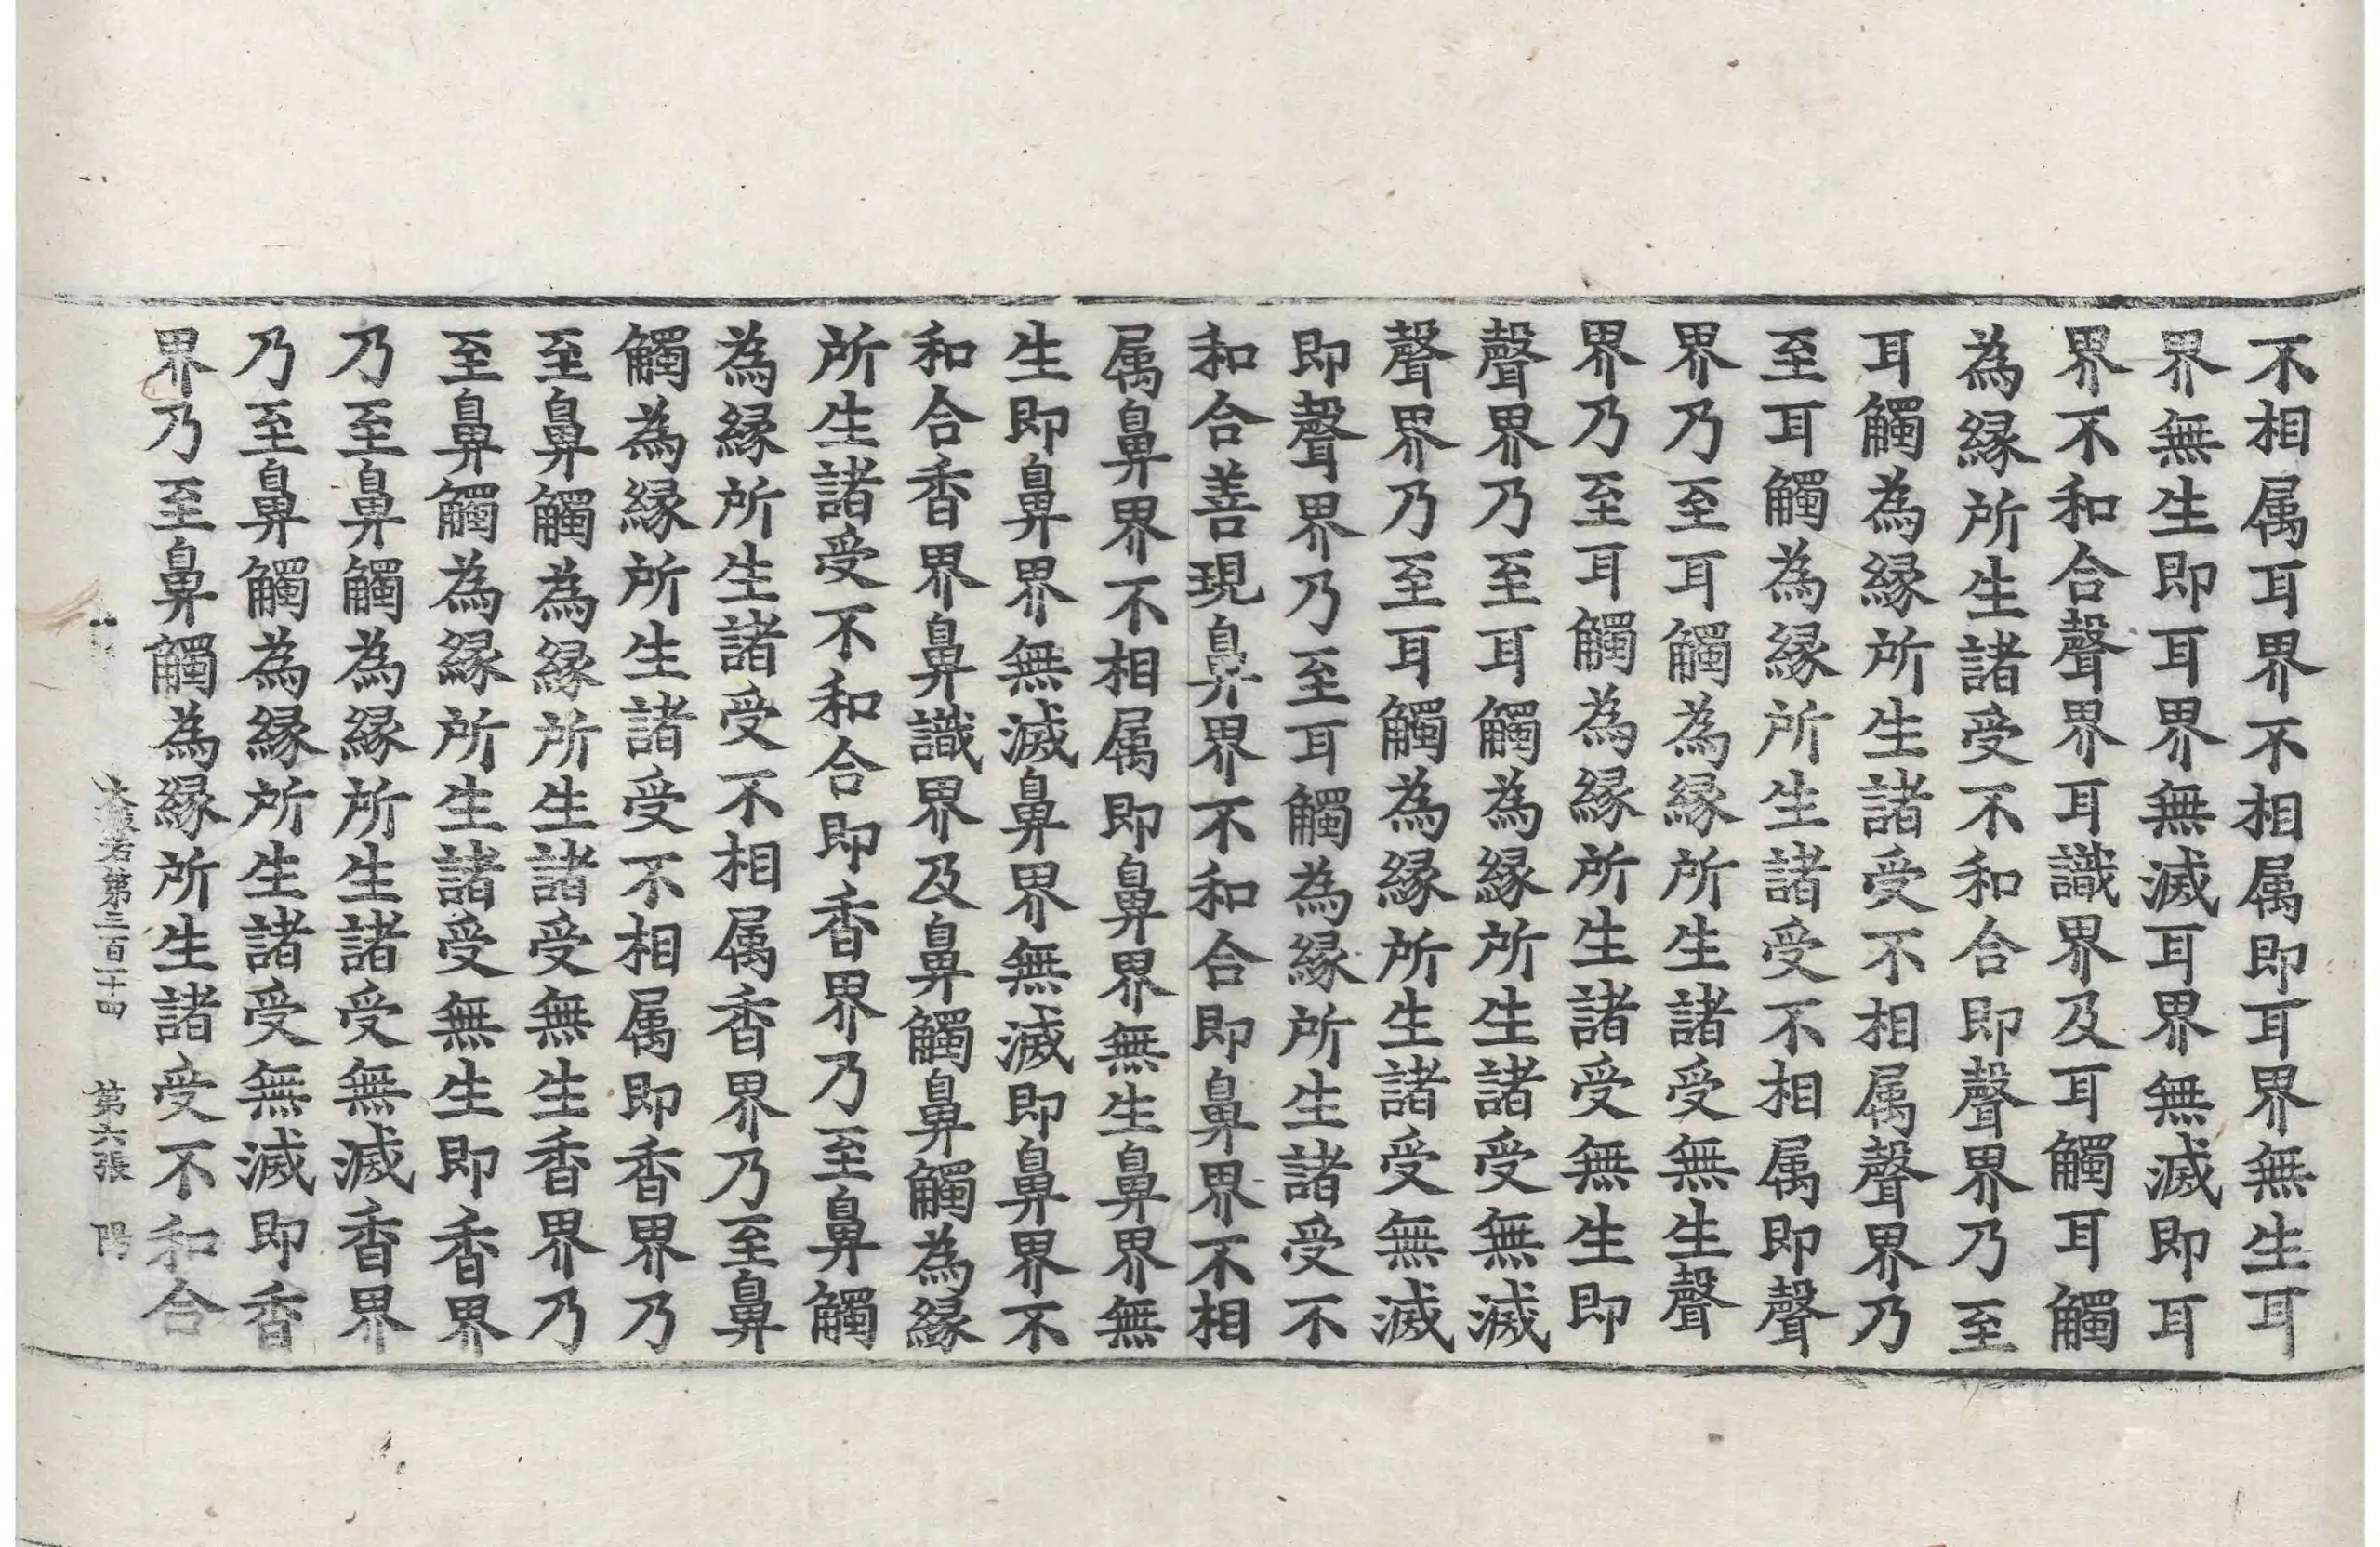 不相属耳界不相属即耳界無生耳
界無生即耳界無滅耳界無滅即耳
界不和合聲界耳識界及耳觸耳觸
為縁所生諸受不和合即聲界乃至
耳觸為縁所生諸受不相属聲界乃
至耳觸為縁所生諸受不相属即聲
界乃至耳觸為縁所生諸受無生聲
界乃至耳觸為縁所生諸受無生即
聲界乃至耳觸為縁所生諸受無滅
聲界乃至耳觸為縁所生諸受無滅
即聲界乃至耳觸為縁所生諸受不
和合善現鼻界不和合即鼻界不相
属鼻界不相属即鼻界無生鼻界無
生即鼻界無滅鼻界無滅即鼻界不
和合香界鼻識界及鼻觸鼻觸為縁
所生諸受不和合即香界乃至鼻觸
為縁所生諸受不相属香界乃至鼻
觸為縁所生諸受不相属即香界乃
至鼻觸為縁所生諸受無生香界乃
至鼻觸為縁所生諸受無生即香界
乃至鼻觸為縁所生諸受無滅香界
乃至鼻觸為縁所生諸受無滅即香
界乃至鼻觸為縁所生諸受不和合
大般若第三百二十四 第六張